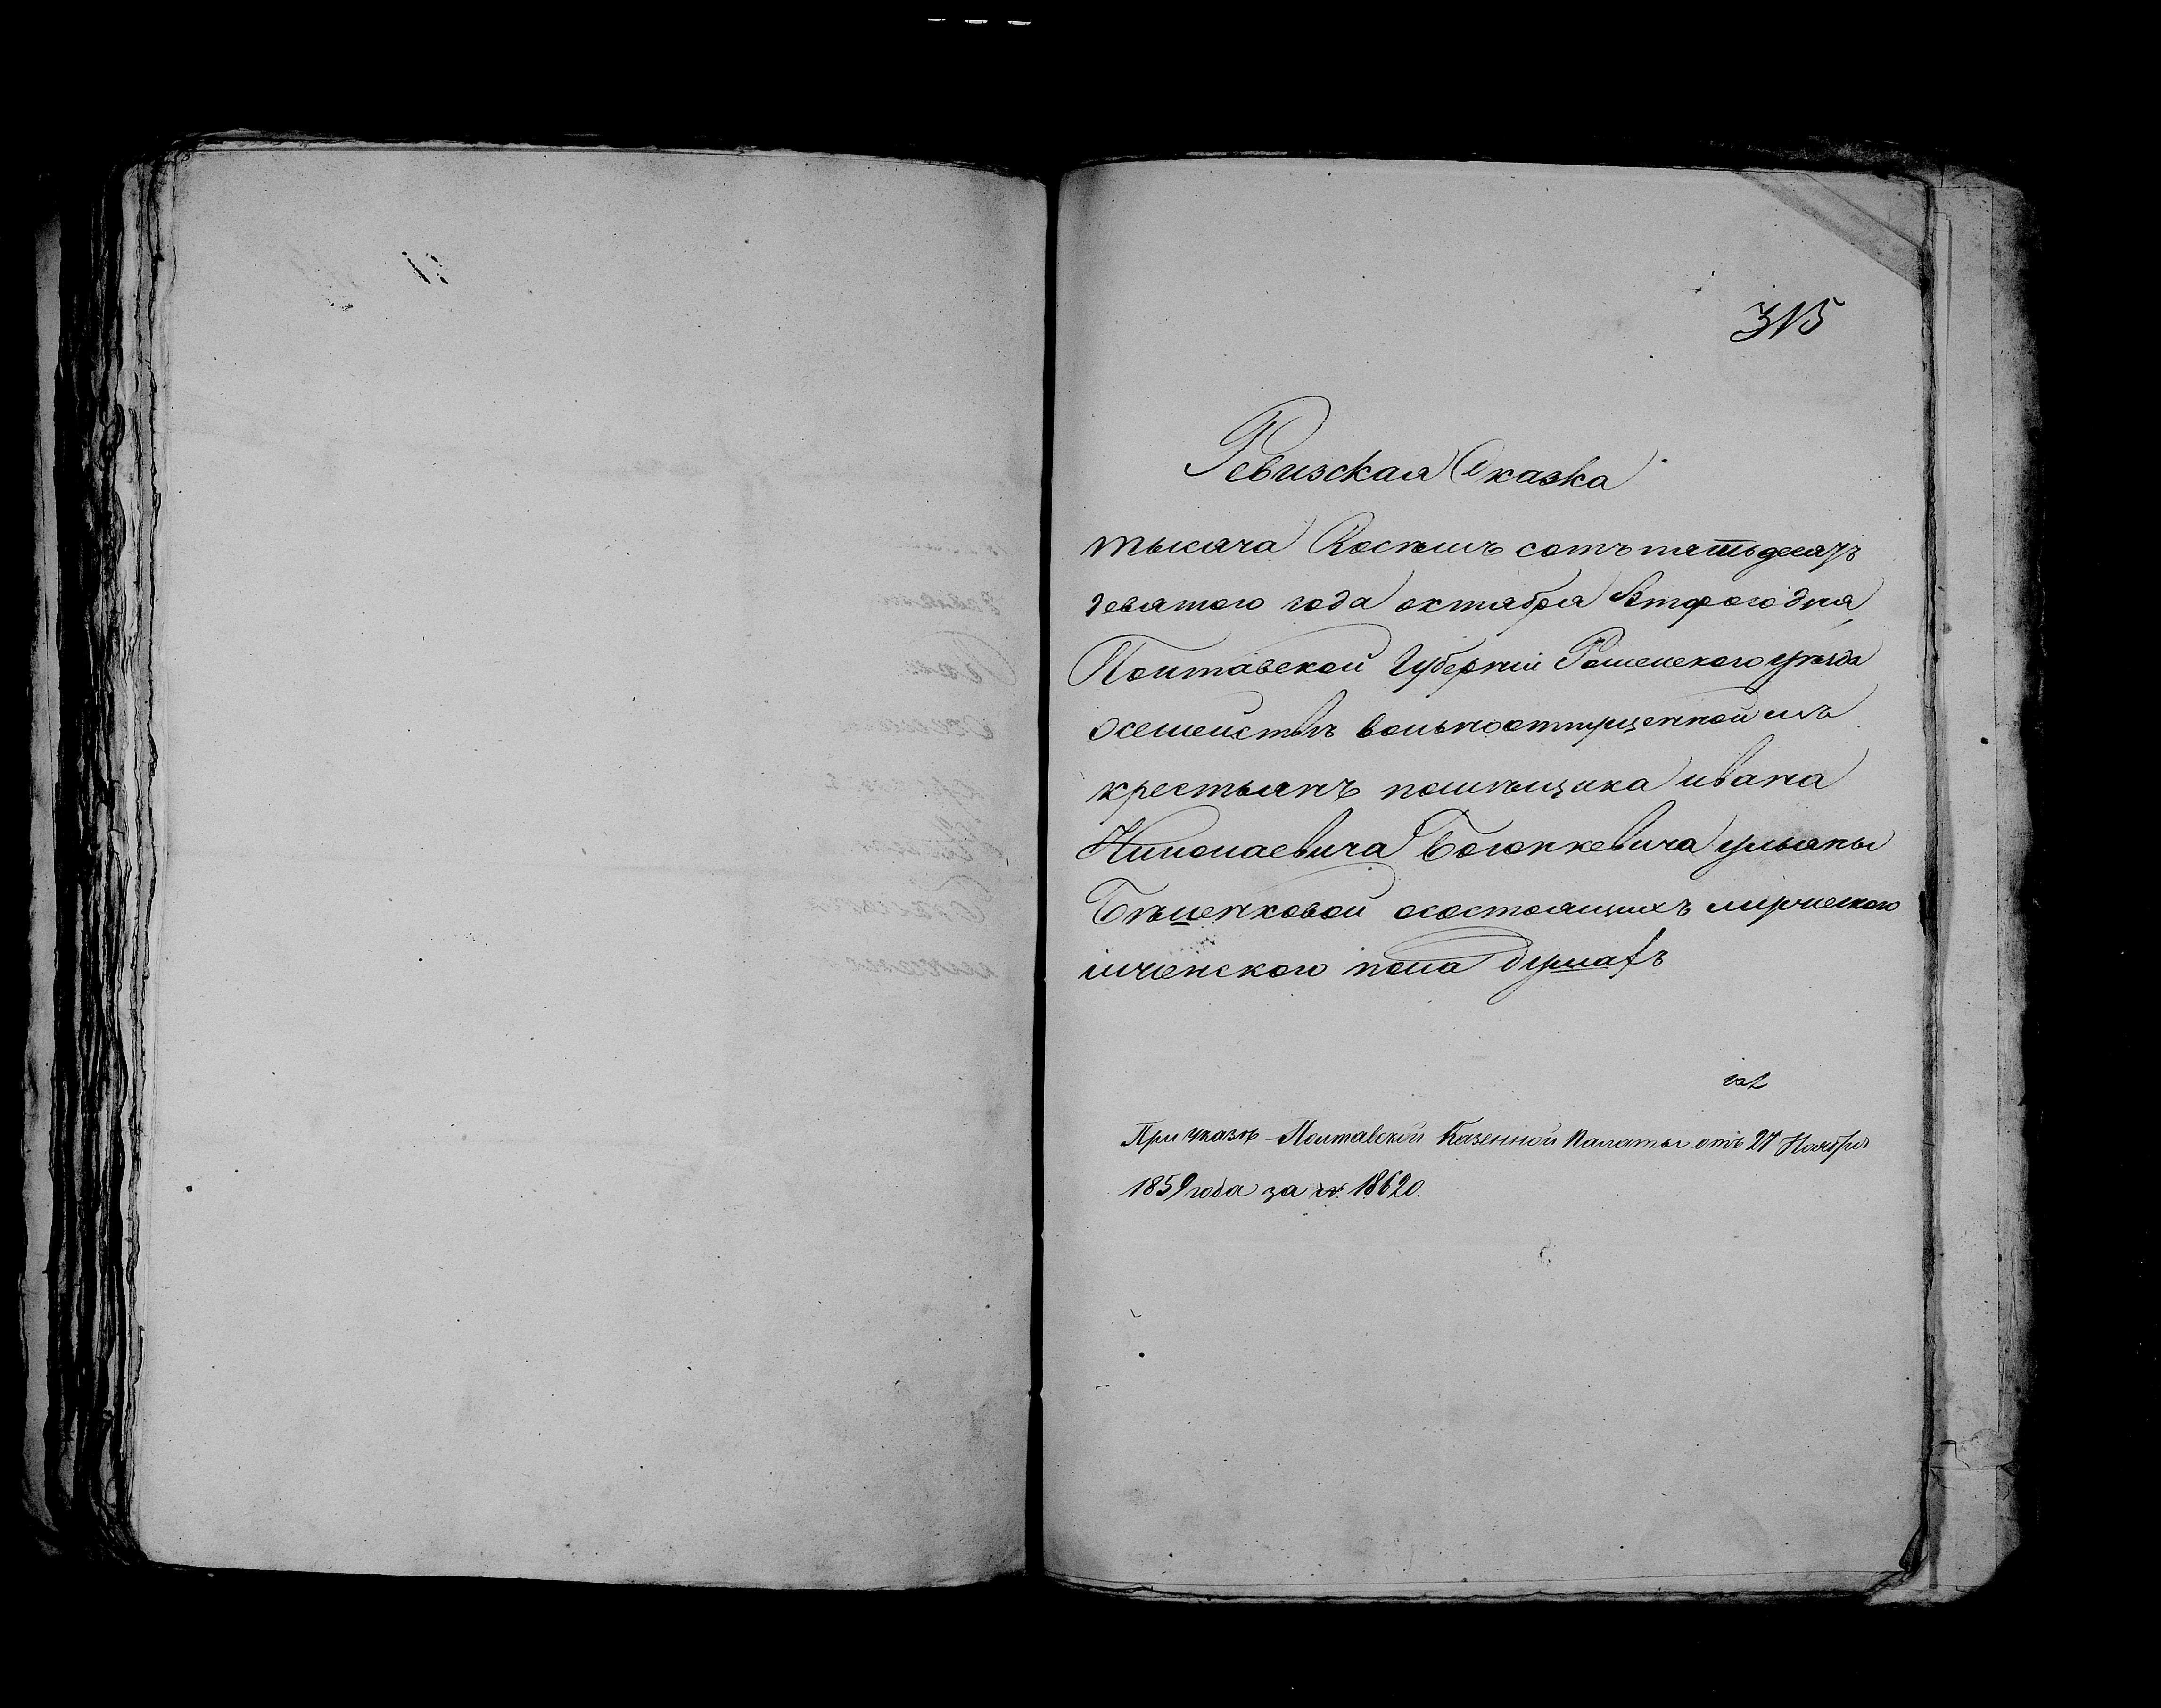 315
Ревизская Сказка
тысяча восемъ сотъ пятьдесятъ
девятого года октября второго дня
Полтавской Губерніи Роменского уезда
осемействѣ вольноотпущенной изъ
крестьянъ помѣщика ивана
Николаевича ульяны
осостоящихъ мужеского
иженского пола душахъ
При указѣ Полтавской Казенной Палаты отъ 27 Ноября
1859 года за № 18620.